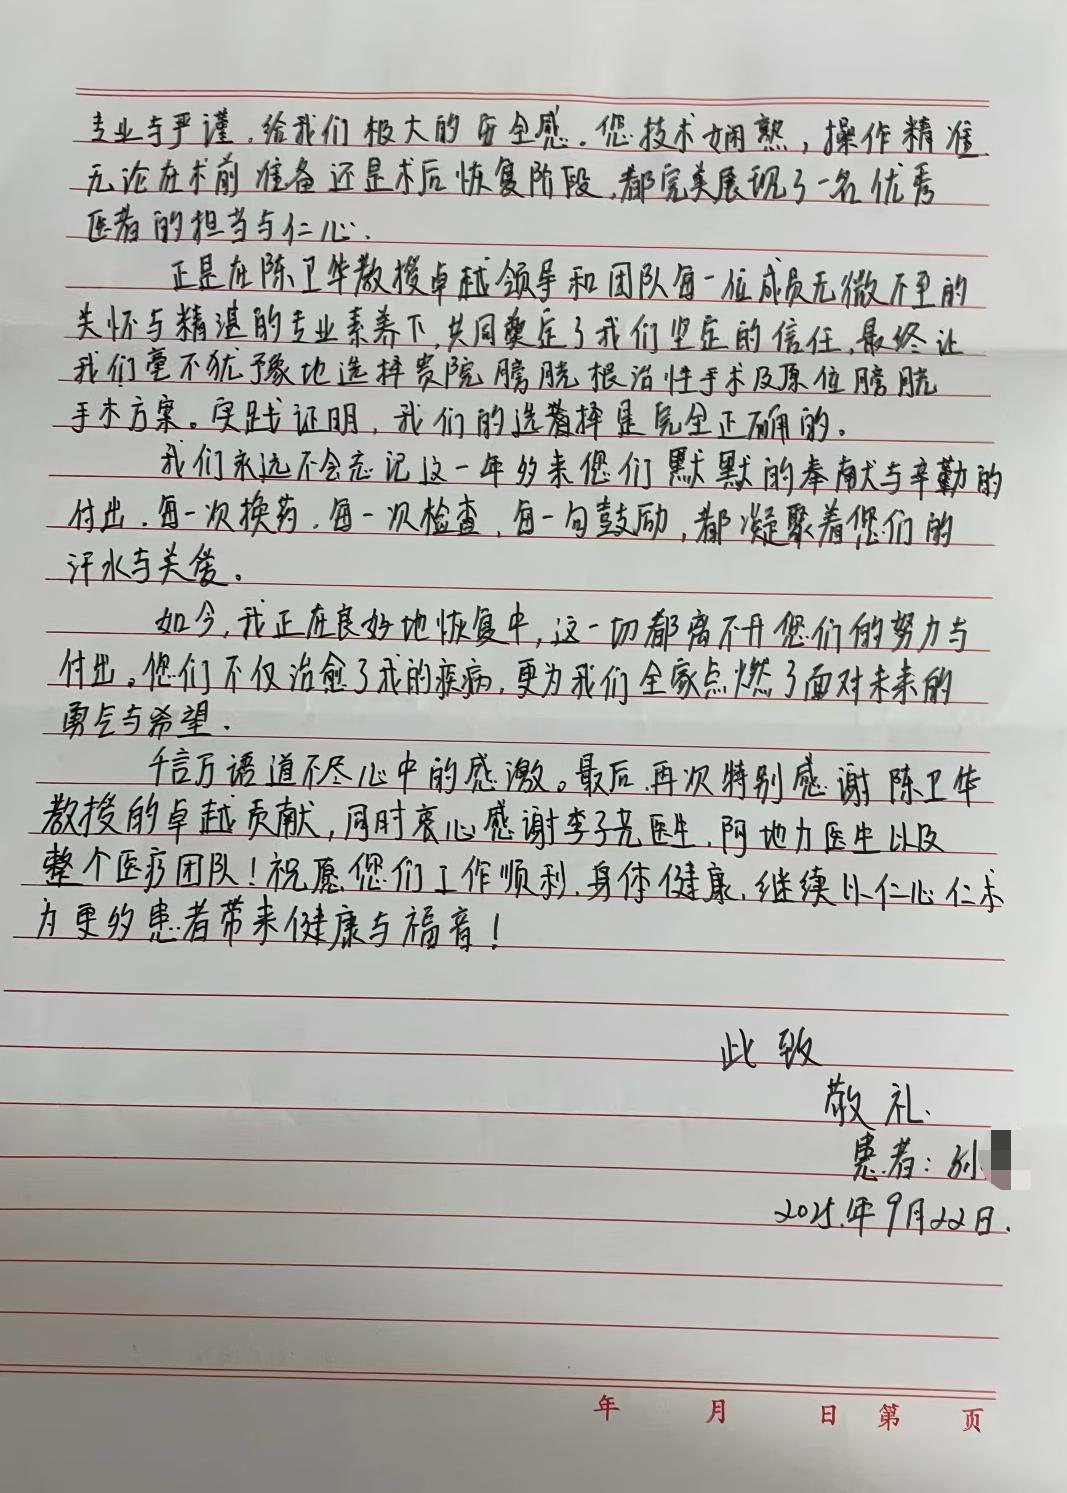 专业与严谨,给我们极大的安全感.您技术娴熟,操作精准
无论在术前准备还是术后恢复阶段,都完美展现了一名优秀
医者的担当与仁心.
正是在陈卫华教授卓越领导和团队每一位成员无微不至的
关怀与精湛的专业素养下,共同奠定了我们坚定的信任,最终让
我们毫不犹豫地选择贵院膀胱根治性手术及原位膀胱
手术方案。实践证明,我们的选择是完全正确的。
我们永远不会忘记这一年多来您们默默的奉献与辛勤的
付出.每一次换药,每一次检查,每一句鼓励,都凝聚着您们的
汗水与关爱。
如今,我正在良好地恢复中,这一切都离不开您们的努力与
付出。您们不仅治愈了我的疾病,更为我们全家点燃了面对未来的
勇气与希望.
千言万语道不尽心中的感激。最后,再次特别感谢陈卫华
教授的卓越贡献,同时衷心感谢李子尧医生,阿地力医生以及
整个医疗团队!祝愿您们工作顺利,身体健康,继续以仁心仁术
为更多患者带来健康与福音!
此致
敬礼.
患者:孙
2025.年9月22日.
年 月 日 第 页